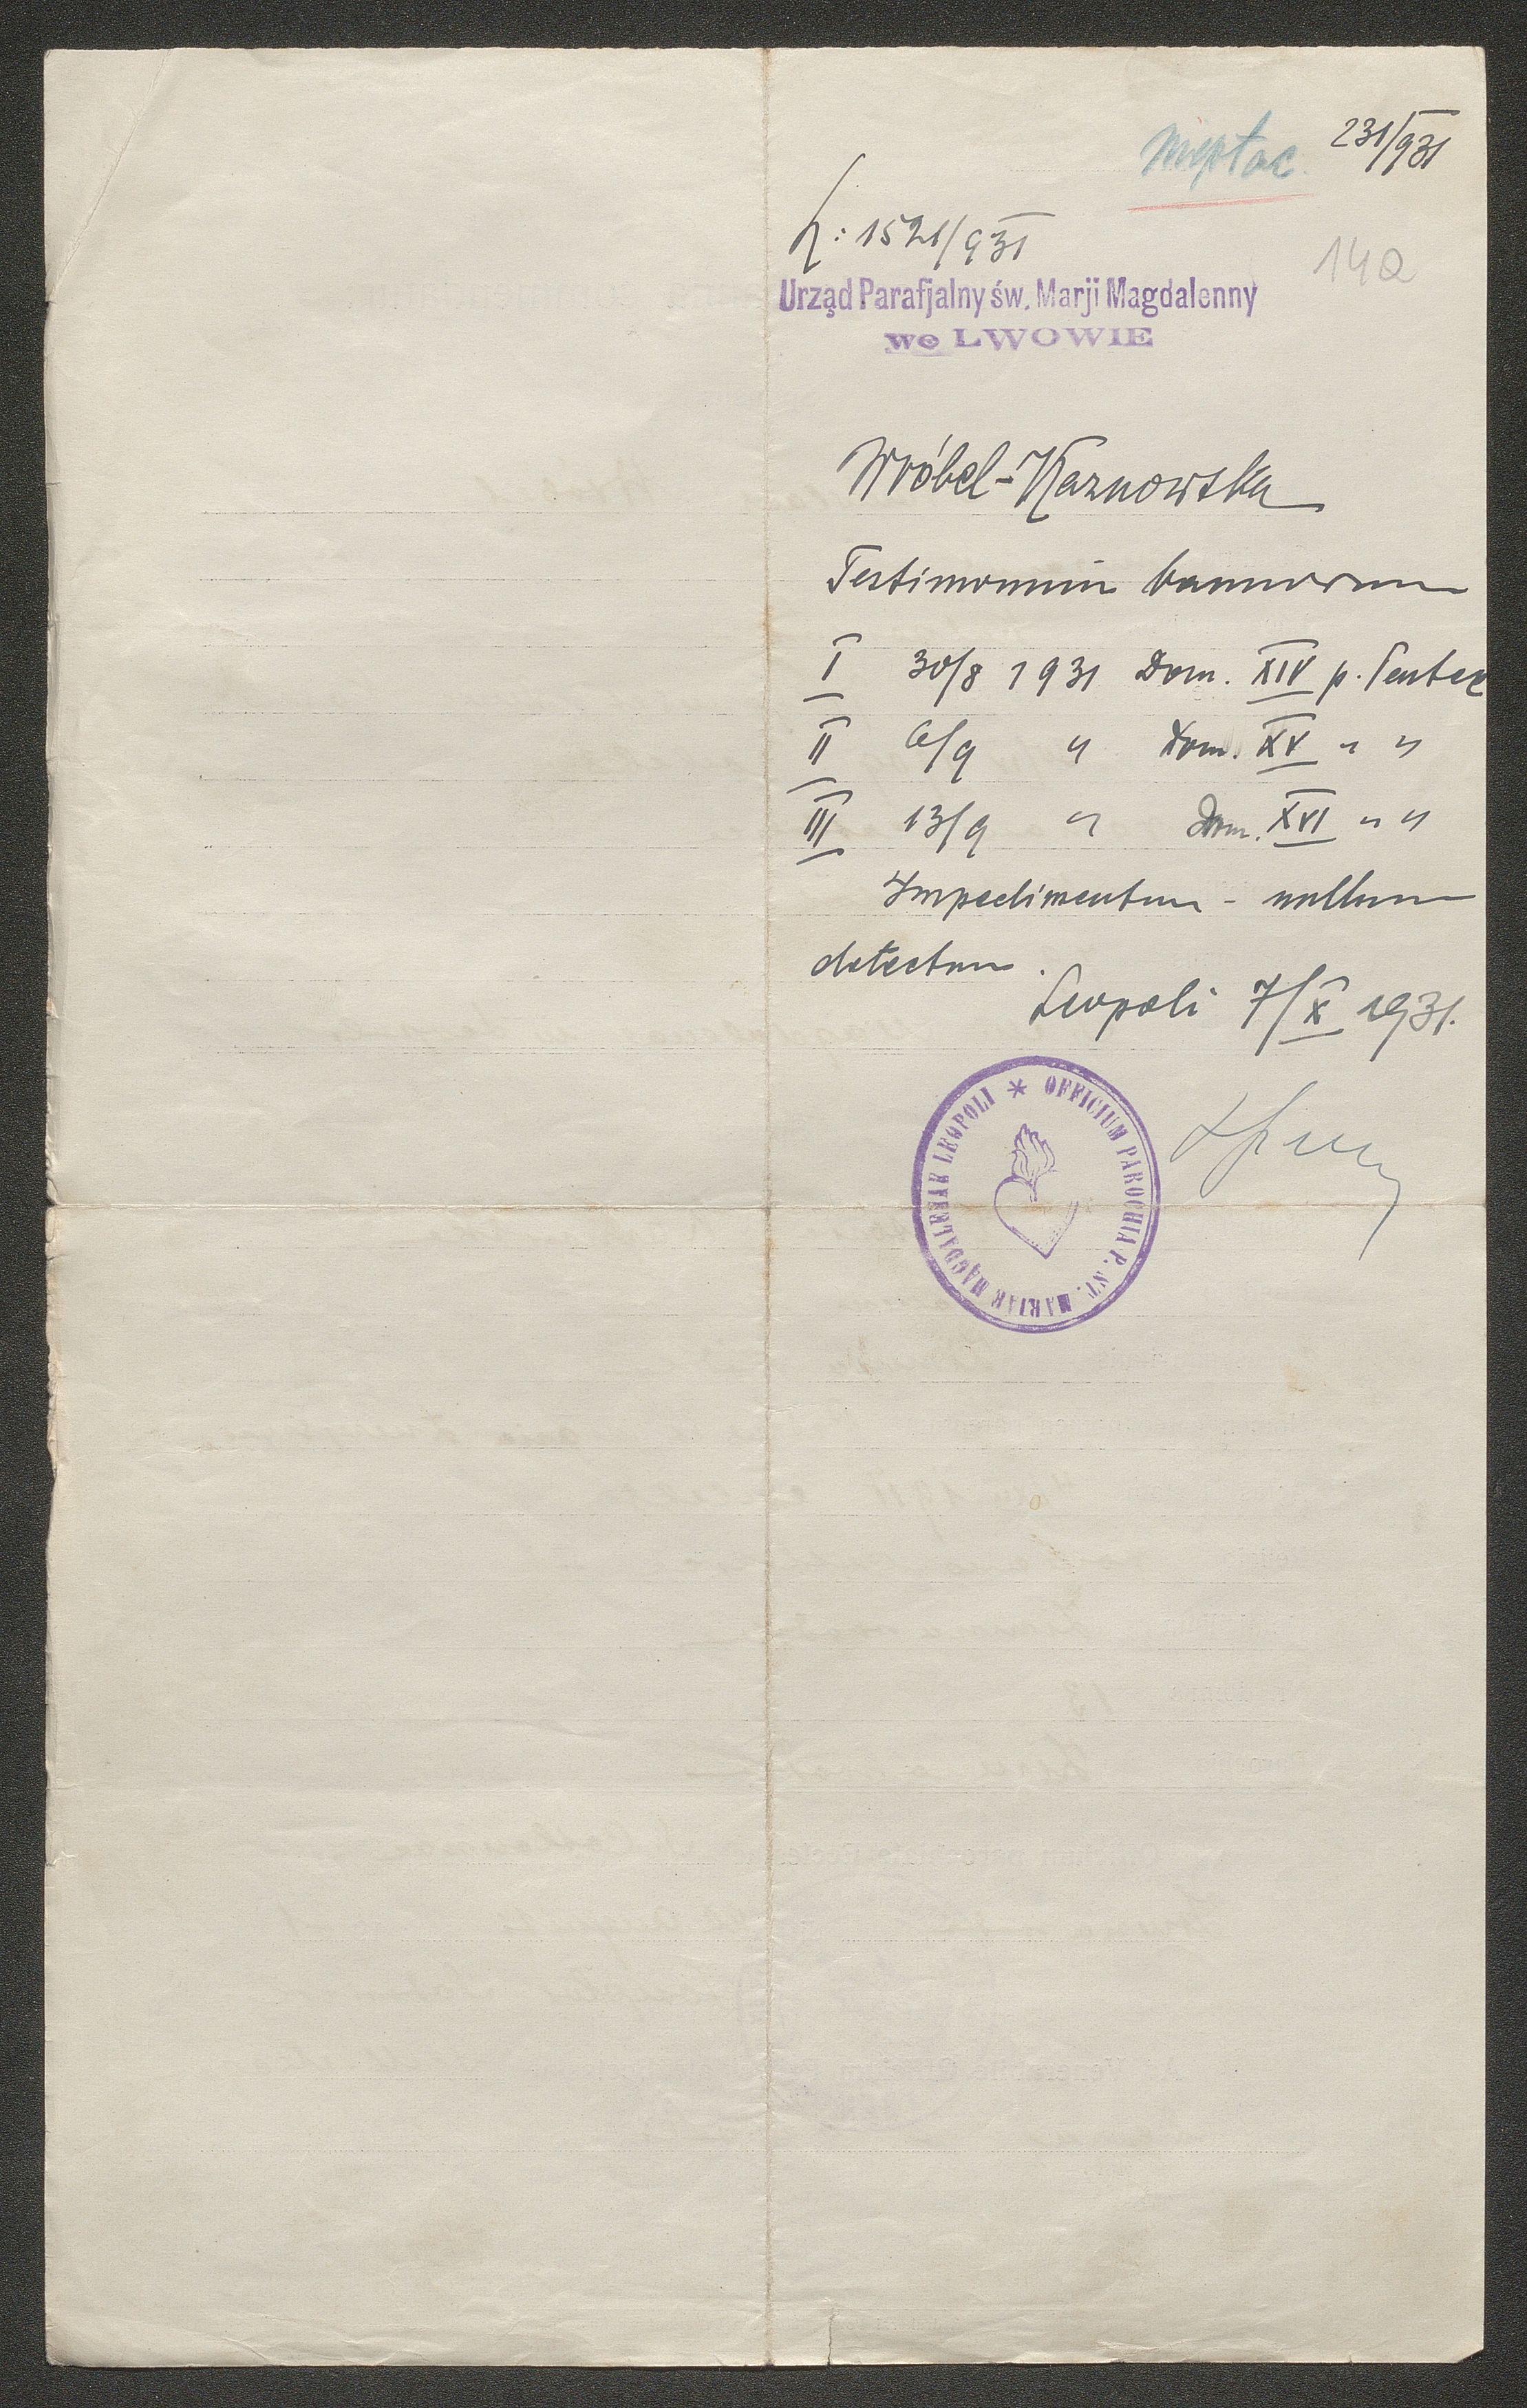 231/931
niepłac.
L: 1521/931
14a
Urząd Parafjalny św. Marji Magdalenny
we LWOWIE
Wróbel-Karnowska
Testimonium bannorum
I 30/8 1931 Dom. XIV p. Pentec
II 6/9 " Dom. XV " "
III 13/9 " Dom. XVI " "
Impedimentum - nullum
detectum.
Leopoli 7/X 1931.
OFFICIUM PAROCHIA P. ST. MARIAE MAGDALENAE LEOPOLI *